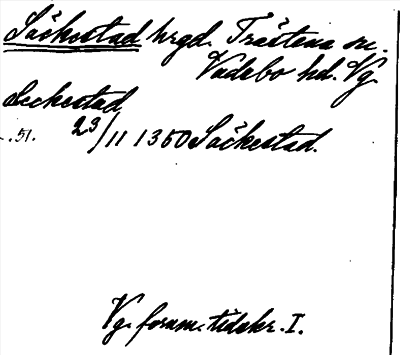 Säckestad hrgd. Trästena sn.
Vadsbo hd. Vg.
Seckestad
.51. 23/11 1350 Säckestad.
Vg. fornm. tidskr. I.